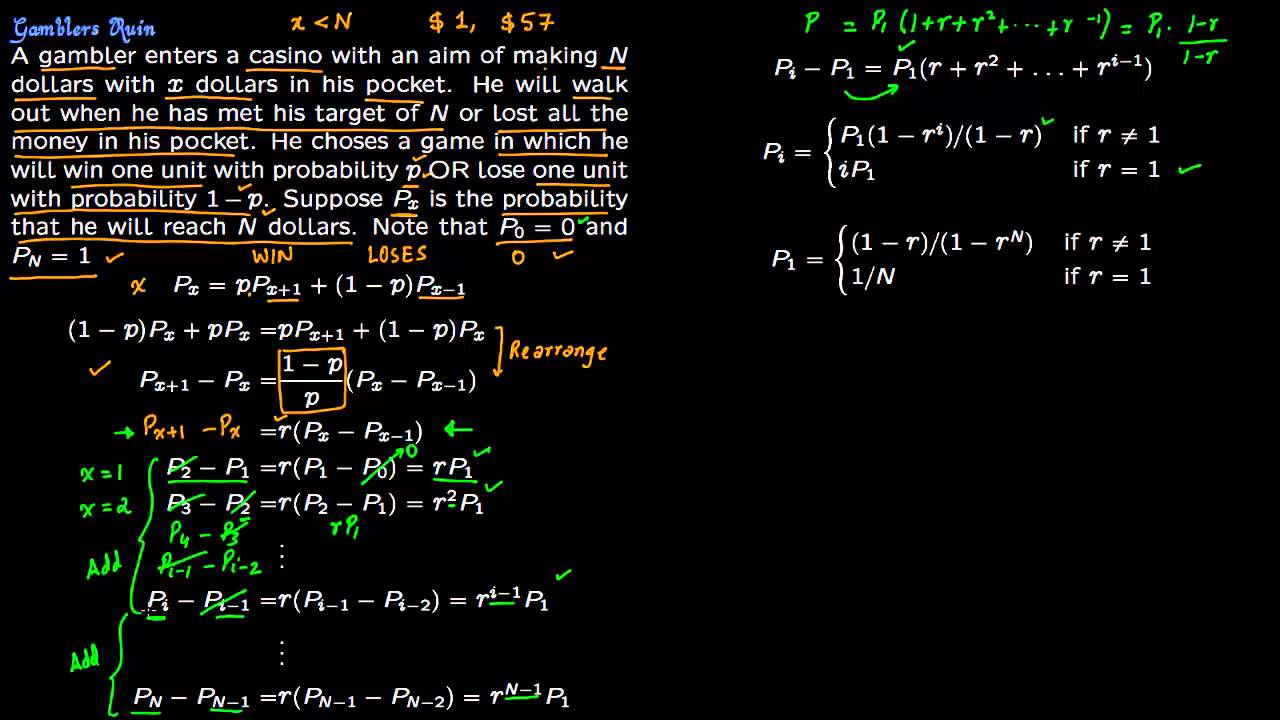 Gamblers Ruin
x < N $ 1, $ 57
A gambler enters a casino with an aim of making N
dollars with x dollars in his pocket. He will walk
out when he has met his target of N or lost all the
money in his pocket. He choses a game in which he
will win one unit with probability p OR lose one unit
with probability 1 − p. Suppose Pₓ is the probability
that he will reach N dollars. Note that P₀ = 0 and
P_N = 1 WIN LOSES 0
x Pₓ = pPₓ₊₁ + (1 − p)Pₓ₋₁
(1 − p)Pₓ + pPₓ =pPₓ₊₁ + (1 − p)Pₓ
Rearrange
Pₓ₊₁ − Pₓ = (1 − p)/p (Pₓ − Pₓ₋₁)
→ Pₓ₊₁ − Pₓ =r(Pₓ − Pₓ₋₁) ←
x = 1 P₂ − P₁ =r(P₁ − P₀) = rP₁
0
x = 2 P₃ − P₂ =r(P₂ − P₁) = r²P₁
P₄ − P₃ rP₁
⋮
Add P_{i-1} − P_{i-2}
P_i − P_{i−1} =r(P_{i−1} − P_{i−2}) = r^{i−1}P₁
⋮
Add
P_N − P_{N−1} =r(P_{N−1} − P_{N−2}) = r^{N−1}P₁
P = P₁ (1 + r + r² + ⋯ + r⁻¹) = P₁ · (1−r)/(1−r)
P_i − P₁ = P₁(r + r² + … + r^{i−1})
P_i = { P₁(1 − r^i)/(1 − r) if r ≠ 1
iP₁ if r = 1
P₁ = { (1 − r)/(1 − r^N) if r ≠ 1
1/N if r = 1